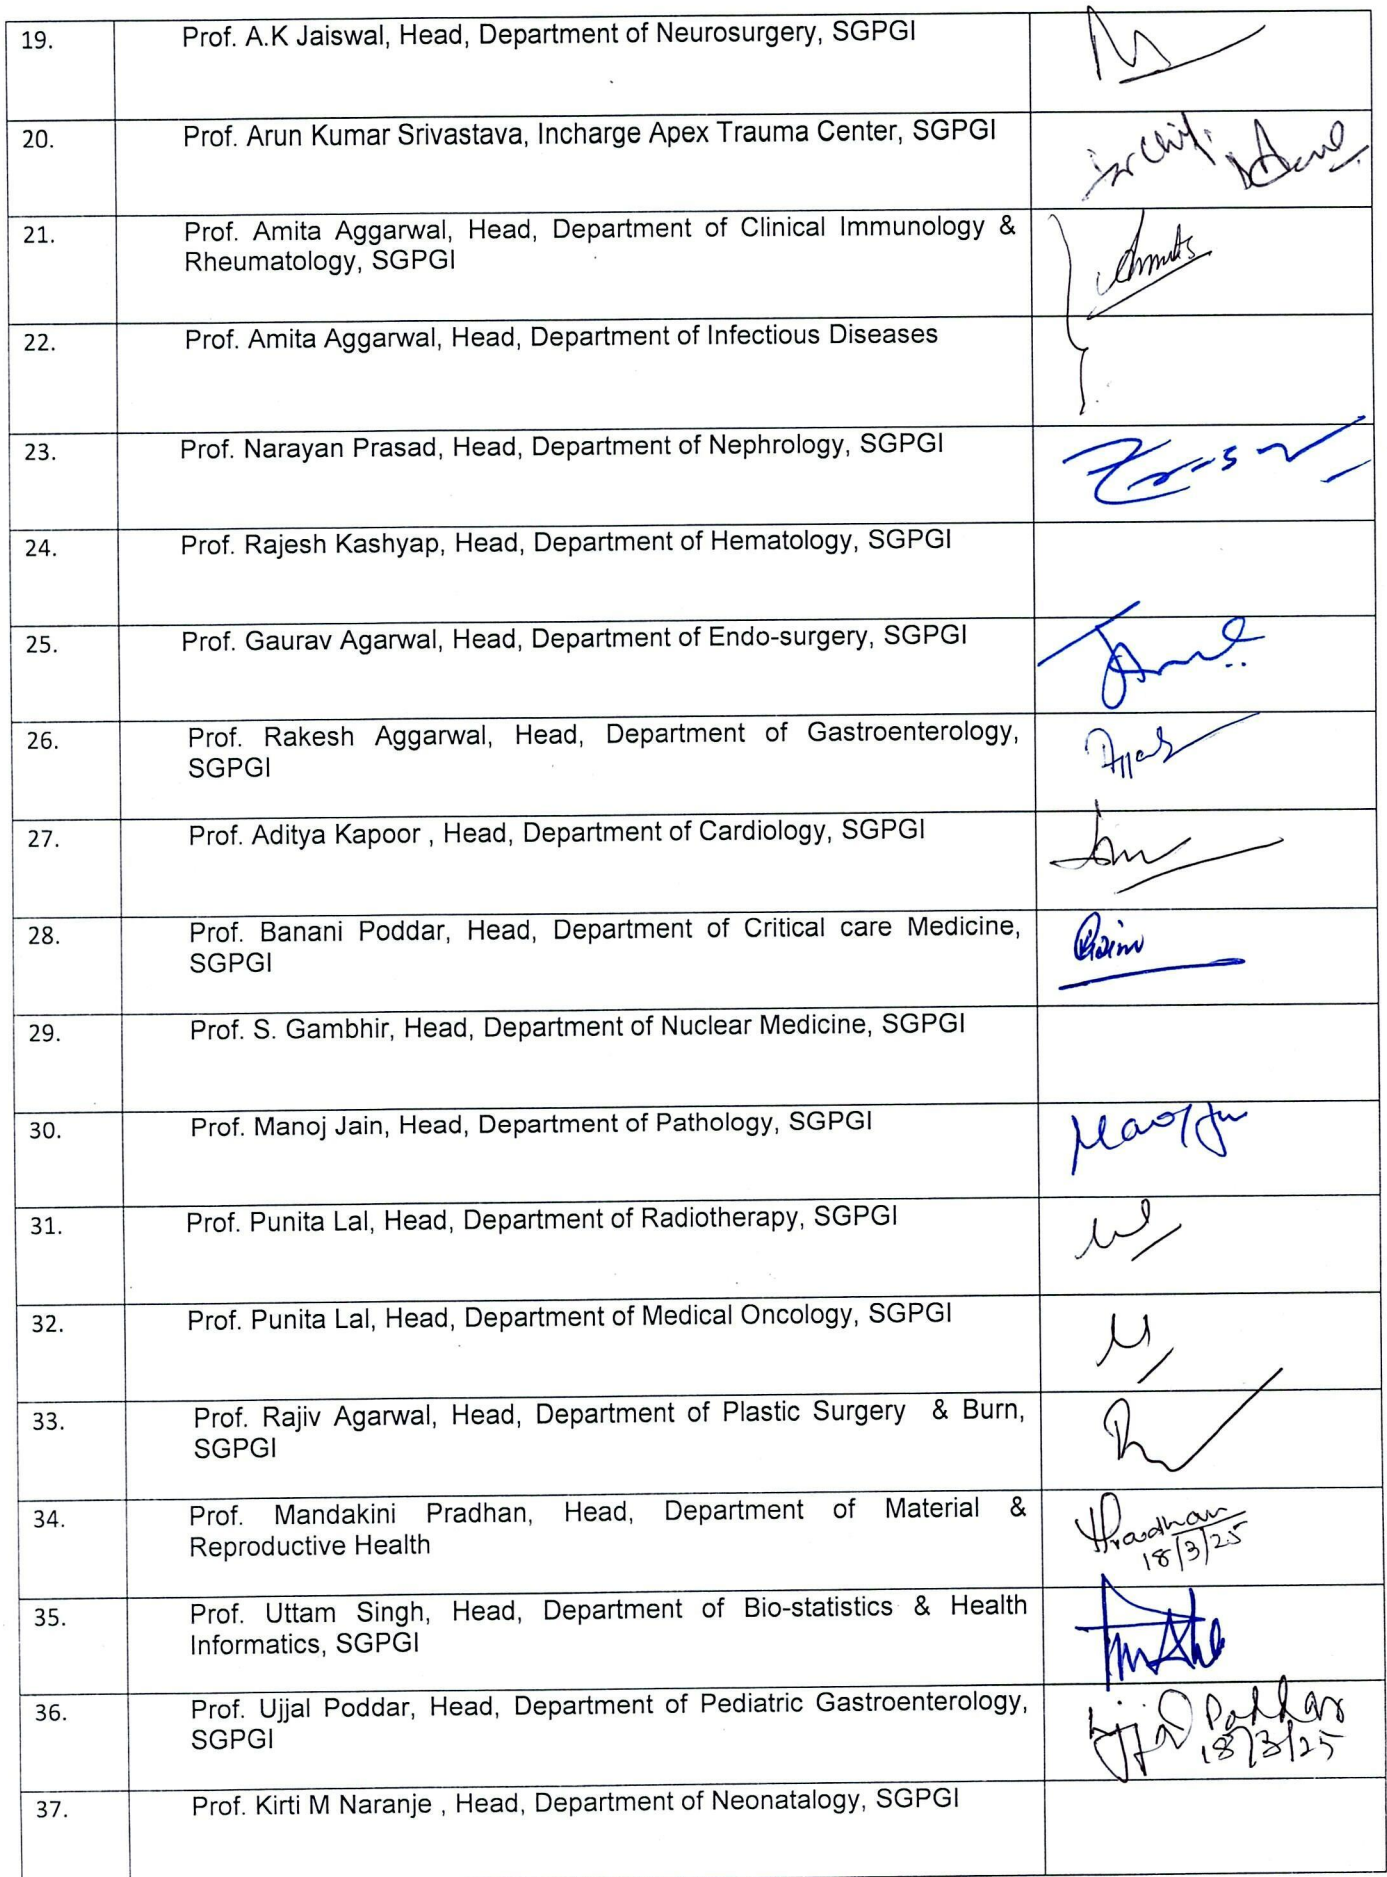 19. Prof. A.K Jaiswal, Head, Department of Neurosurgery, SGPGI
20. Prof. Arun Kumar Srivastava, Incharge Apex Trauma Center, SGPGI
21. Prof. Amita Aggarwal, Head, Department of Clinical Immunology &
Rheumatology, SGPGI
22. Prof. Amita Aggarwal, Head, Department of Infectious Diseases
23. Prof. Narayan Prasad, Head, Department of Nephrology, SGPGI
24. Prof. Rajesh Kashyap, Head, Department of Hematology, SGPGI
25. Prof. Gaurav Agarwal, Head, Department of Endo-surgery, SGPGI
26. Prof. Rakesh Aggarwal, Head, Department of Gastroenterology,
SGPGI
27. Prof. Aditya Kapoor , Head, Department of Cardiology, SGPGI
28. Prof. Banani Poddar, Head, Department of Critical care Medicine,
SGPGI
29. Prof. S. Gambhir, Head, Department of Nuclear Medicine, SGPGI
30. Prof. Manoj Jain, Head, Department of Pathology, SGPGI
31. Prof. Punita Lal, Head, Department of Radiotherapy, SGPGI
32. Prof. Punita Lal, Head, Department of Medical Oncology, SGPGI
33. Prof. Rajiv Agarwal, Head, Department of Plastic Surgery & Burn,
SGPGI
34. Prof. Mandakini Pradhan, Head, Department of Material &
Reproductive Health
Pradhan
18/3/25
35. Prof. Uttam Singh, Head, Department of Bio-statistics & Health
Informatics, SGPGI
36. Prof. Ujjal Poddar, Head, Department of Pediatric Gastroenterology,
SGPGI
Ujjal Poddar
18/3/25
37. Prof. Kirti M Naranje , Head, Department of Neonatalogy, SGPGI